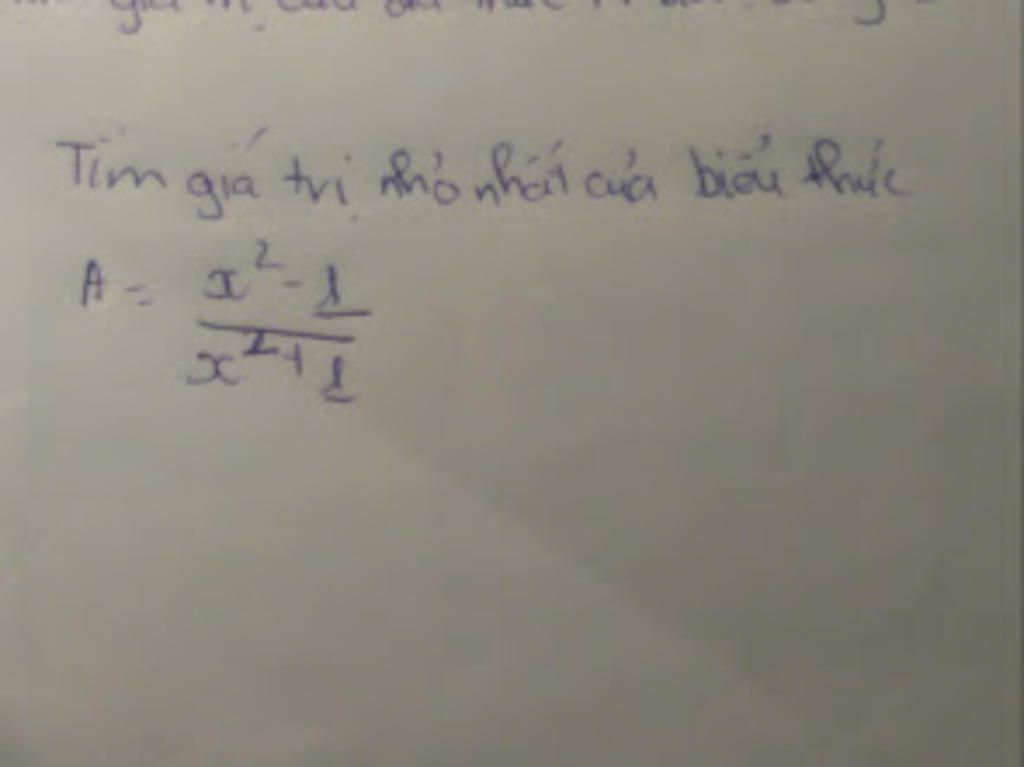 Tìm giá trị nhỏ nhất của biểu thức
A = x² - 1
x² + 1